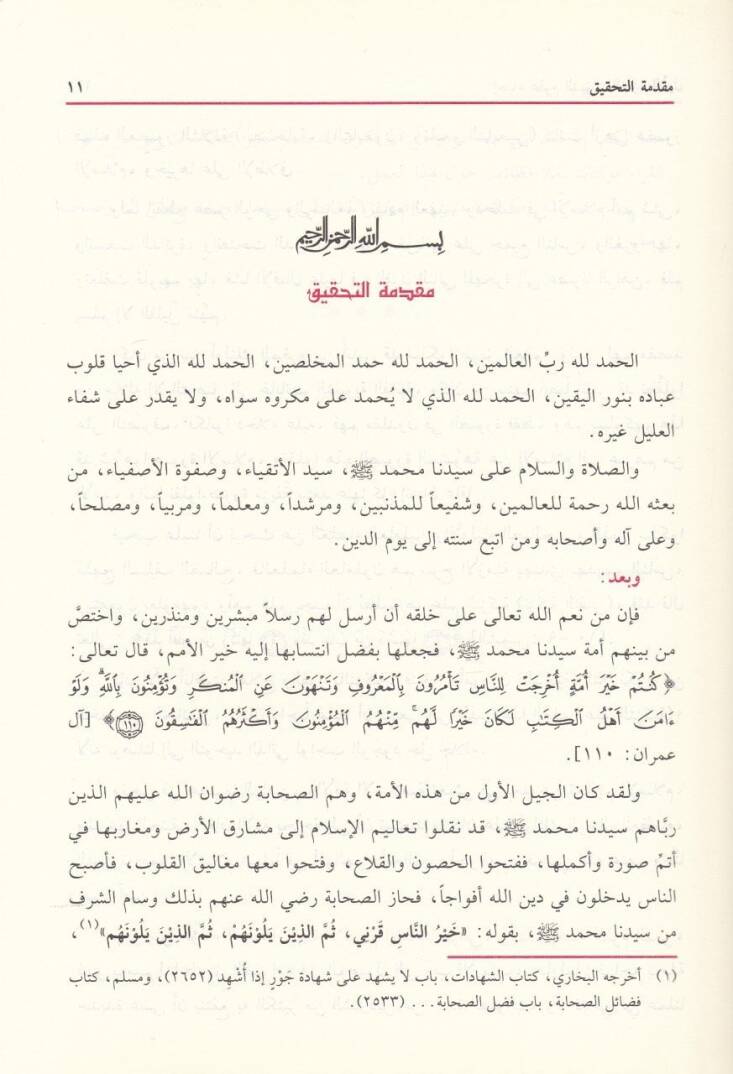 مقدمة التحقيق ١١
بسم الله الرحمن الرحيم
مقدمة التحقيق
الحمد لله ربِّ العالمين، الحمد لله حمد المخلصين، الحمد لله الذي أحيا قلوب
عباده بنور اليقين، الحمد لله الذي لا يُحمد على مكروه سواه، ولا يقدر على شفاء
العليل غيره.
والصلاة والسلام على سيدنا محمد ﷺ، سيد الأتقياء، وصفوة الأصفياء، من
بعثه الله رحمة للعالمين، وشفيعاً للمذنبين، ومرشداً، ومعلماً، ومربياً، ومصلحاً،
وعلى آله وأصحابه ومن اتبع سنته إلى يوم الدين.
وبعد:
فإن من نعم الله تعالى على خلقه أن أرسل لهم رسلاً مبشرين ومنذرين، واختصَّ
من بينهم أمة سيدنا محمد ﷺ، فجعلها بفضل انتسابها إليه خير الأمم، قال تعالى:
﴿كُنتُمْ خَيْرَ أُمَّةٍ أُخْرِجَتْ لِلنَّاسِ تَأْمُرُونَ بِالْمَعْرُوفِ وَتَنْهَوْنَ عَنِ الْمُنكَرِ وَتُؤْمِنُونَ بِاللَّهِ ۗ وَلَوْ
ءَامَنَ أَهْلُ الْكِتَٰبِ لَكَانَ خَيْرًا لَّهُم ۚ مِّنْهُمُ الْمُؤْمِنُونَ وَأَكْثَرُهُمُ الْفَٰسِقُونَ ﴿١١٠﴾﴾ [آل
عمران: ١١٠].
ولقد كان الجيل الأول من هذه الأمة، وهم الصحابة رضوان الله عليهم الذين
ربَّاهم سيدنا محمد ﷺ، قد نقلوا تعاليم الإسلام إلى مشارق الأرض ومغاربها في
أتمِّ صورة وأكملها، ففتحوا الحصون والقلاع، وفتحوا معها مغاليق القلوب، فأصبح
الناس يدخلون في دين الله أفواجاً، فحاز الصحابة رضي الله عنهم بذلك وسام الشرف
من سيدنا محمد ﷺ، بقوله: «خَيْرُ النَّاسِ قَرْنِي، ثُمَّ الذِينَ يَلُونَهُمْ، ثُمَّ الذِينَ يَلُونَهُم»(١)،
(١) أخرجه البخاري، كتاب الشهادات، باب لا يشهد على شهادة جَوْرٍ إذا أُشْهِد (٢٦٥٢)، ومسلم، كتاب
فضائل الصحابة، باب فضل الصحابة... (٢٥٣٣).